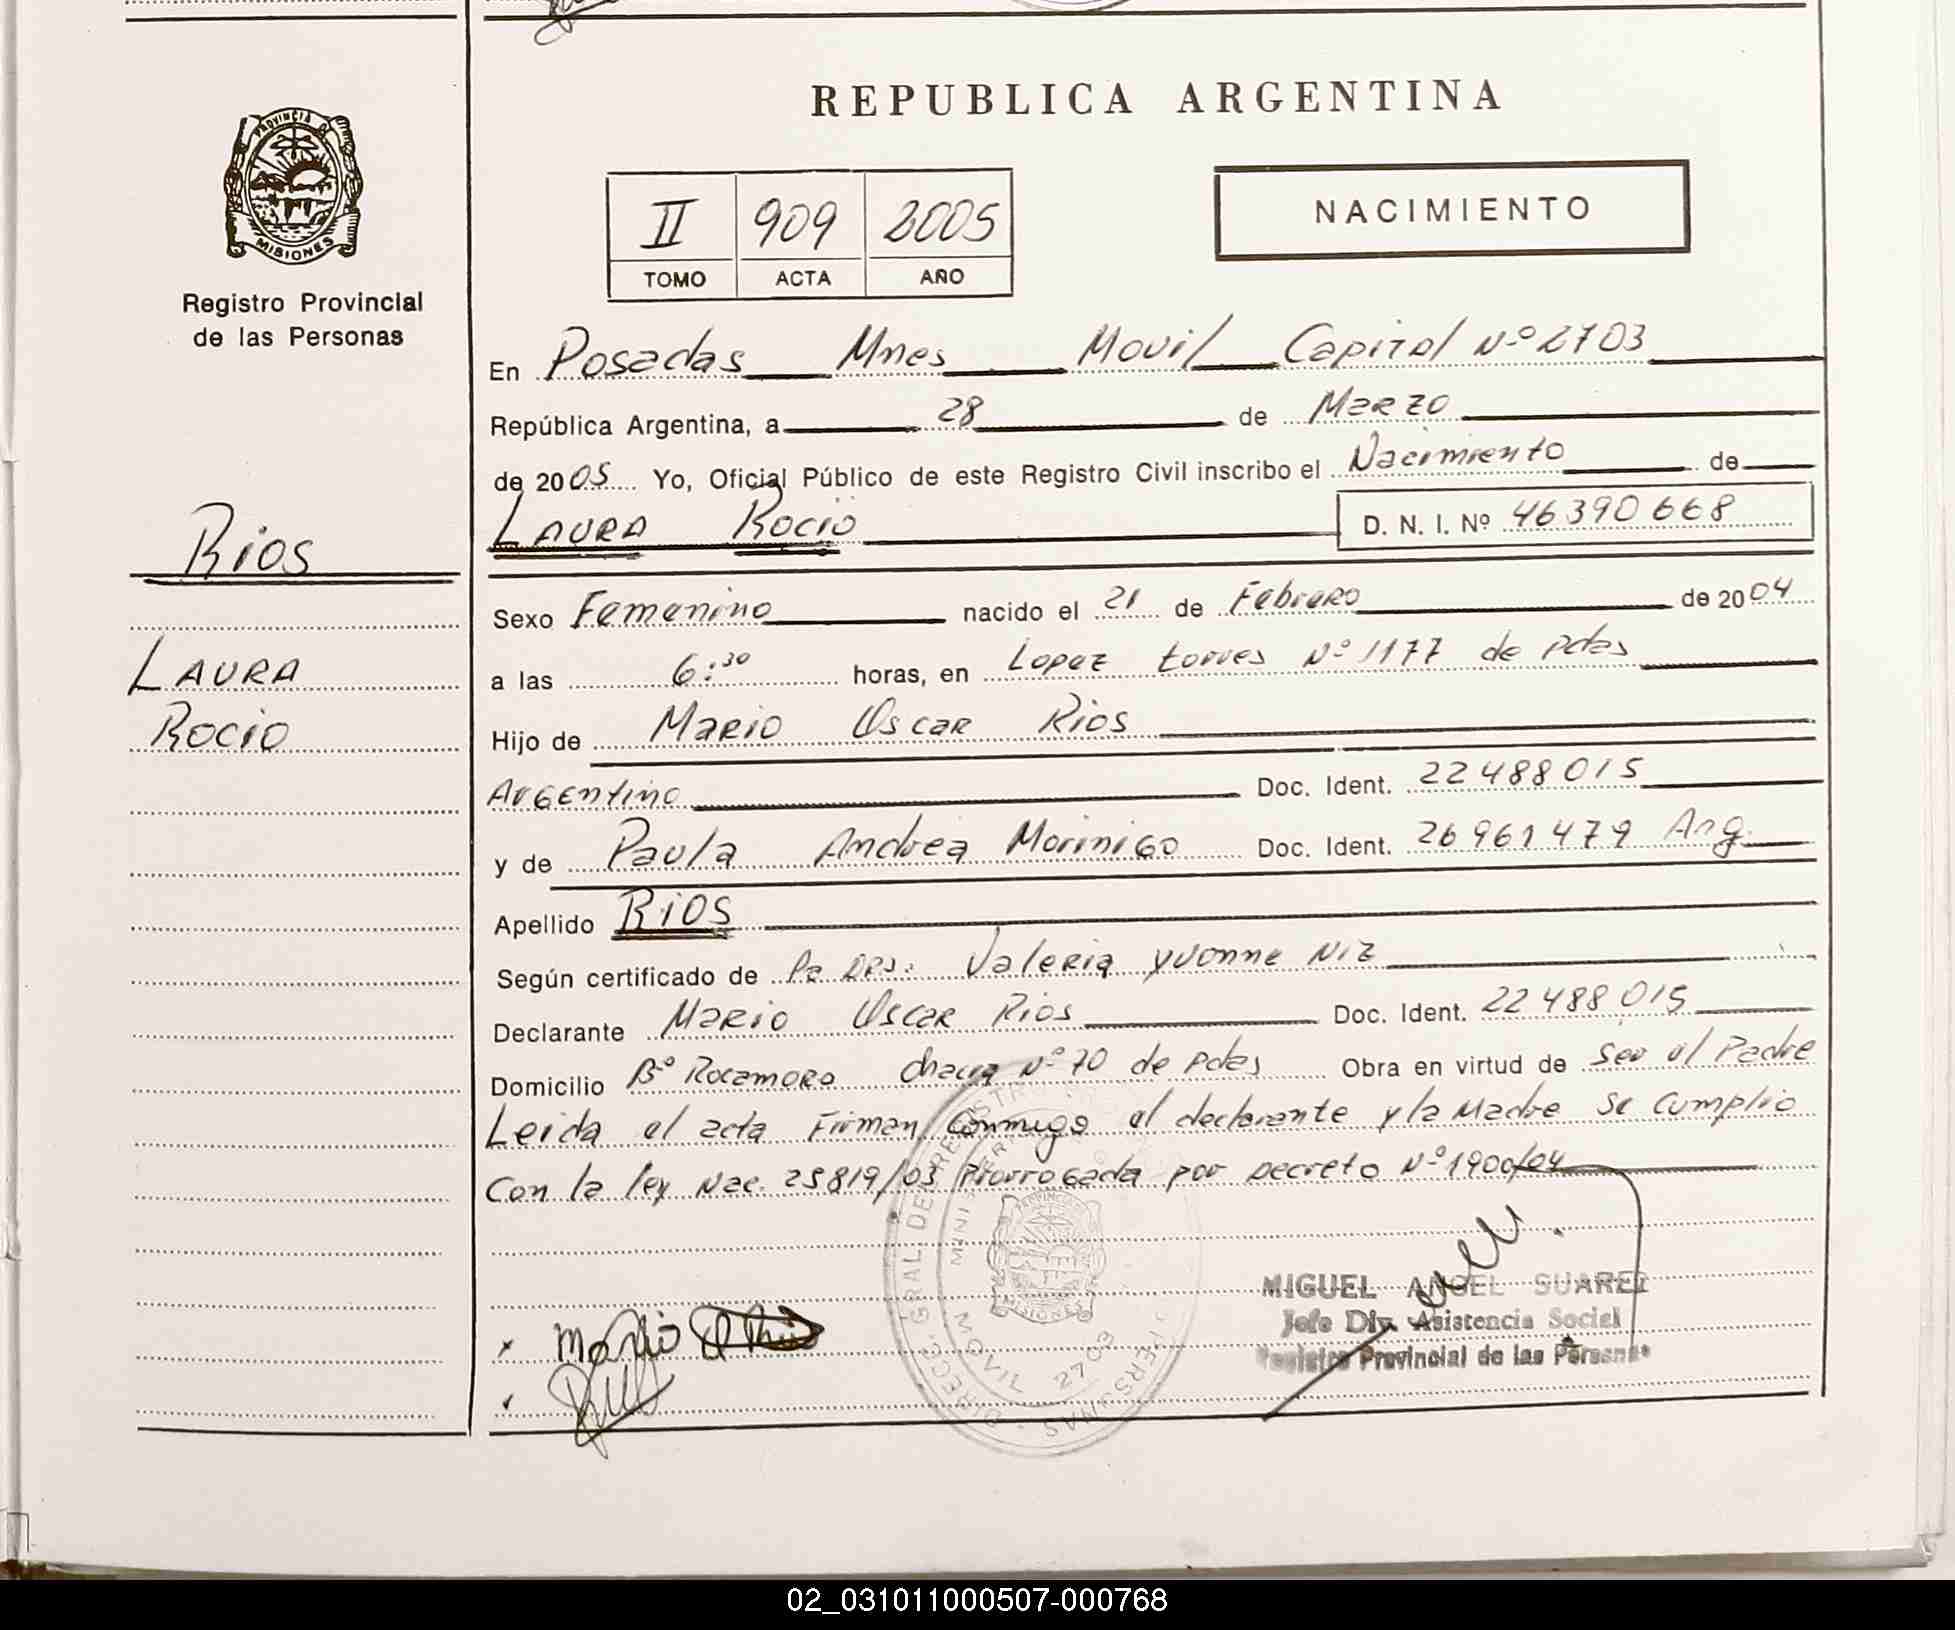 REPUBLICA ARGENTINA
PROVINCIA DE
MISIONES
Registro Provincial
de las Personas
II 909 2005
TOMO ACTA AÑO
NACIMIENTO
En Posadas Mnes Movil Capital Nº 2703
República Argentina, a 28 de Marzo
de 2005 Yo, Oficial Público de este Registro Civil inscribo el Nacimiento de
LAURA Rocio D. N. I. Nº 46390668
Rios
LAURA
Rocio
Sexo Femenino nacido el 21 de Febrero de 2004
a las 6:30 horas, en Lopez torres Nº 1177 de pdas
Hijo de Mario Oscar Rios
Argentino Doc. Ident. 22488015
y de Paula Andrea Morinigo Doc. Ident. 26961479 Arg.
Apellido Rios
Según certificado de Valeria yvonne Niz
Declarante Mario Oscar Rios Doc. Ident. 22488015
Domicilio Bº Rocamora chacra Nº 70 de pdas Obra en virtud de ser el Padre
Leida el acta Firman Conmigo el declarante y la Madre se cumplio
Con la ley Nac. 25819/03 Prorrogada por Decreto Nº 1900/04
MOVIL 2703
MIGUEL ANGEL SUAREZ
Jefe Div. Asistencia Social
Registro Provincial de las Personas
x Mario
02_031011000507-000768